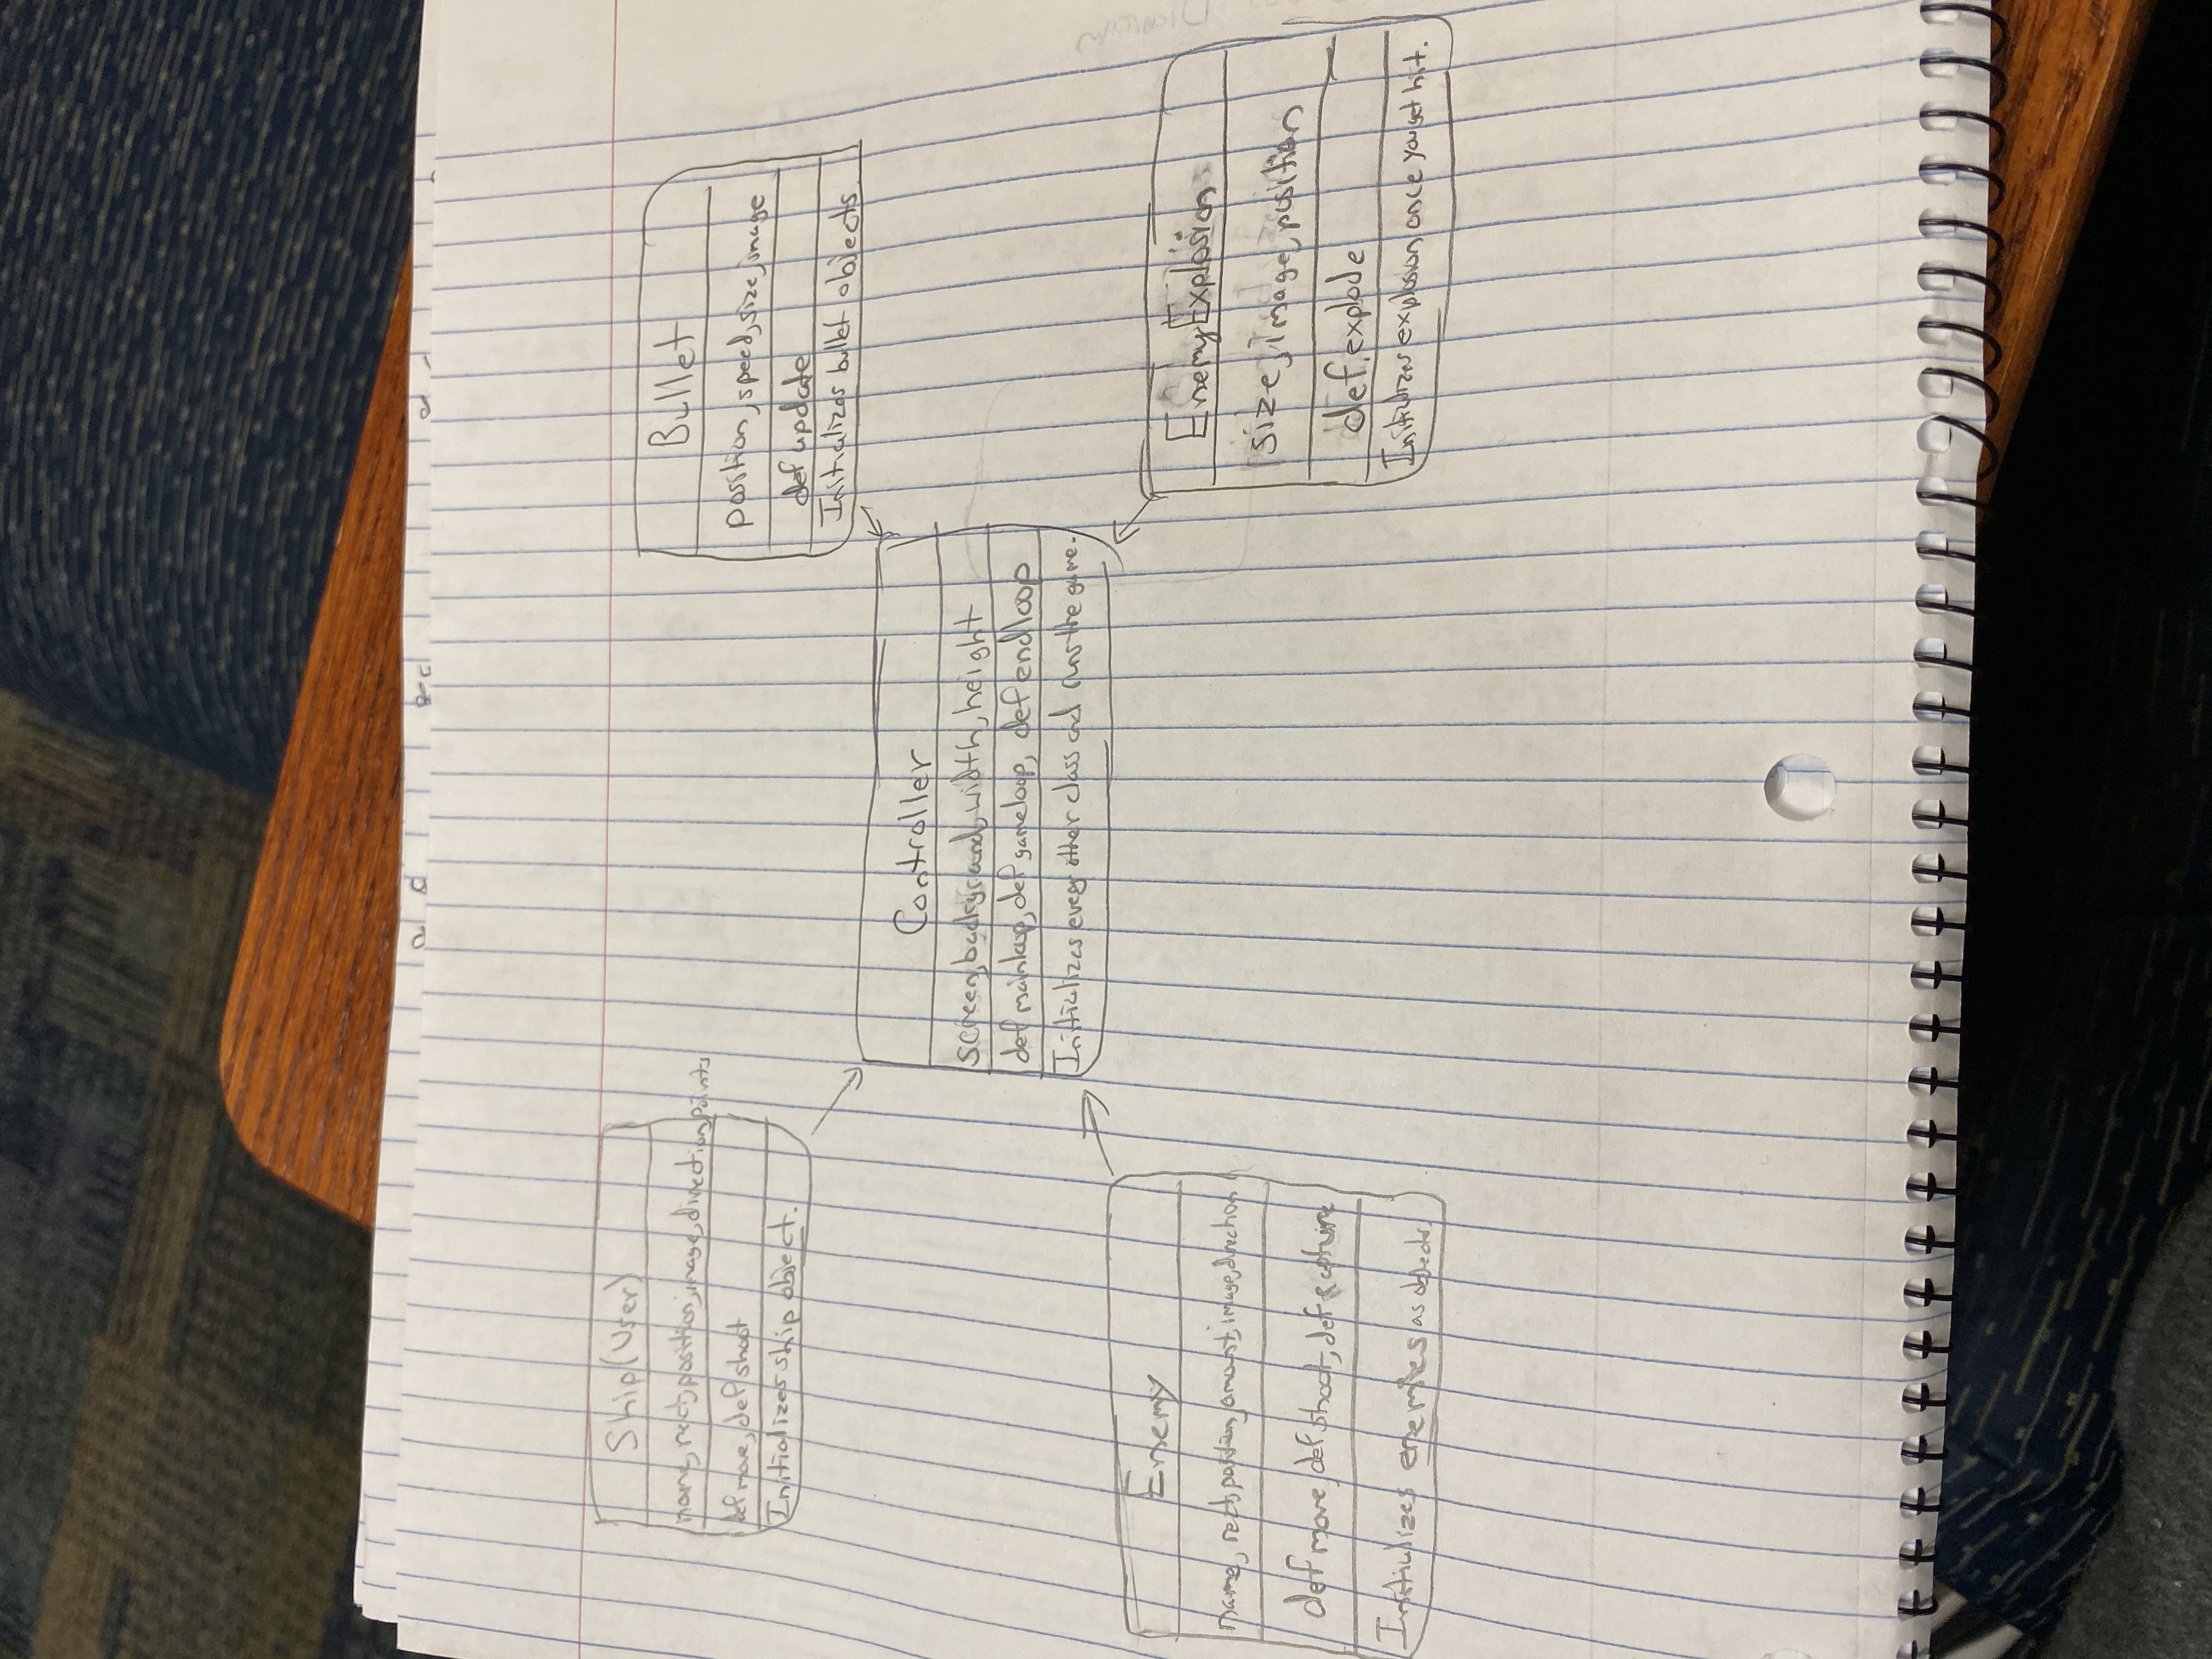 Ship(User)
name, rect, position, image, direction, points
def move, def shoot
Initializes ship object.
Bullet
position, speed, size, image
def update
Initializes bullet objects.
Controller
screen, background, width, height
def mainloop, def gameloop, def endloop
Initializes every other class and runs the game.
Enemy
name, rect, position, amount, image, direction
def move, def shoot, def capture
Initializes enemies as objects.
EnemyExplosion
size, image, position
def explode
Initializes explosion once you get hit.